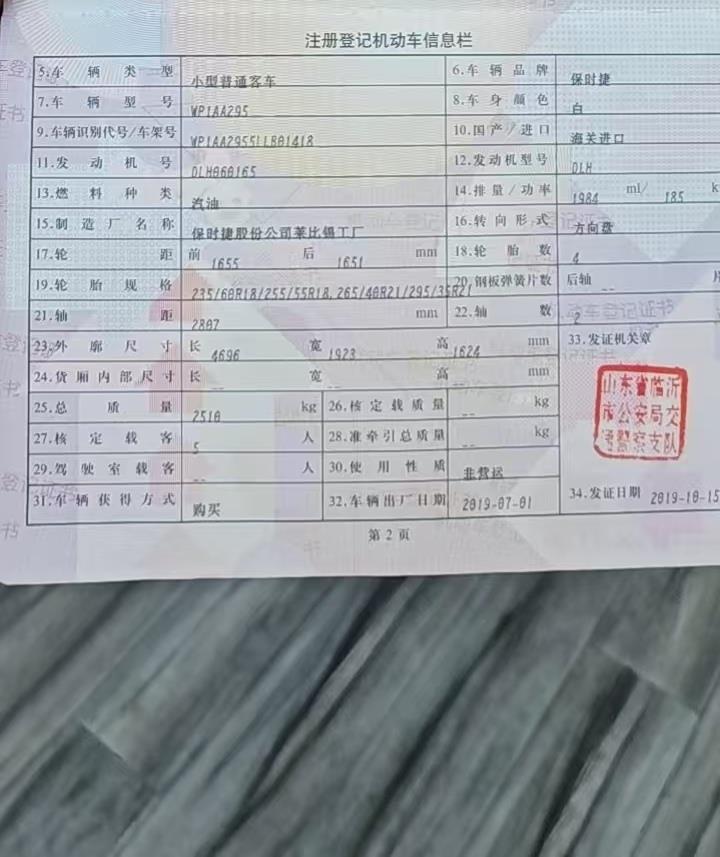 注册登记机动车信息栏
5.车辆类型 小型普通客车 6.车辆品牌 保时捷
7.车辆型号 WP1AA295 8.车身颜色 白
9.车辆识别代号/车架号 WP1AA2955LLB01418 10.国产/进口 海关进口
11.发动机号 DLH060165 12.发动机型号 DLH
13.燃料种类 汽油 14.排量/功率 1984 ml/ 185 k
15.制造厂名称 保时捷股份公司莱比锡工厂 16.转向形式 方向盘
17.轮距 前 1655 后 1651 mm 18.轮胎数 4
19.轮胎规格 235/60R18/255/55R18,265/40R21/295/35R21 20.钢板弹簧片数 后轴 -- 片
21.轴距 2807 mm 22.轴数 2
23.外廓尺寸 长 4696 宽 1923 高 1624 mm 33.发证机关章
24.货厢内部尺寸 长 -- 宽 -- 高 -- mm
25.总质量 2510 kg 26.核定载质量 -- kg
27.核定载客 5 人 28.准牵引总质量 -- kg
29.驾驶室载客 -- 人 30.使用性质 非营运
31.车辆获得方式 购买 32.车辆出厂日期 2019-07-01 34.发证日期 2019-10-15
山东省临沂
市公安局交
通警察支队
第2页